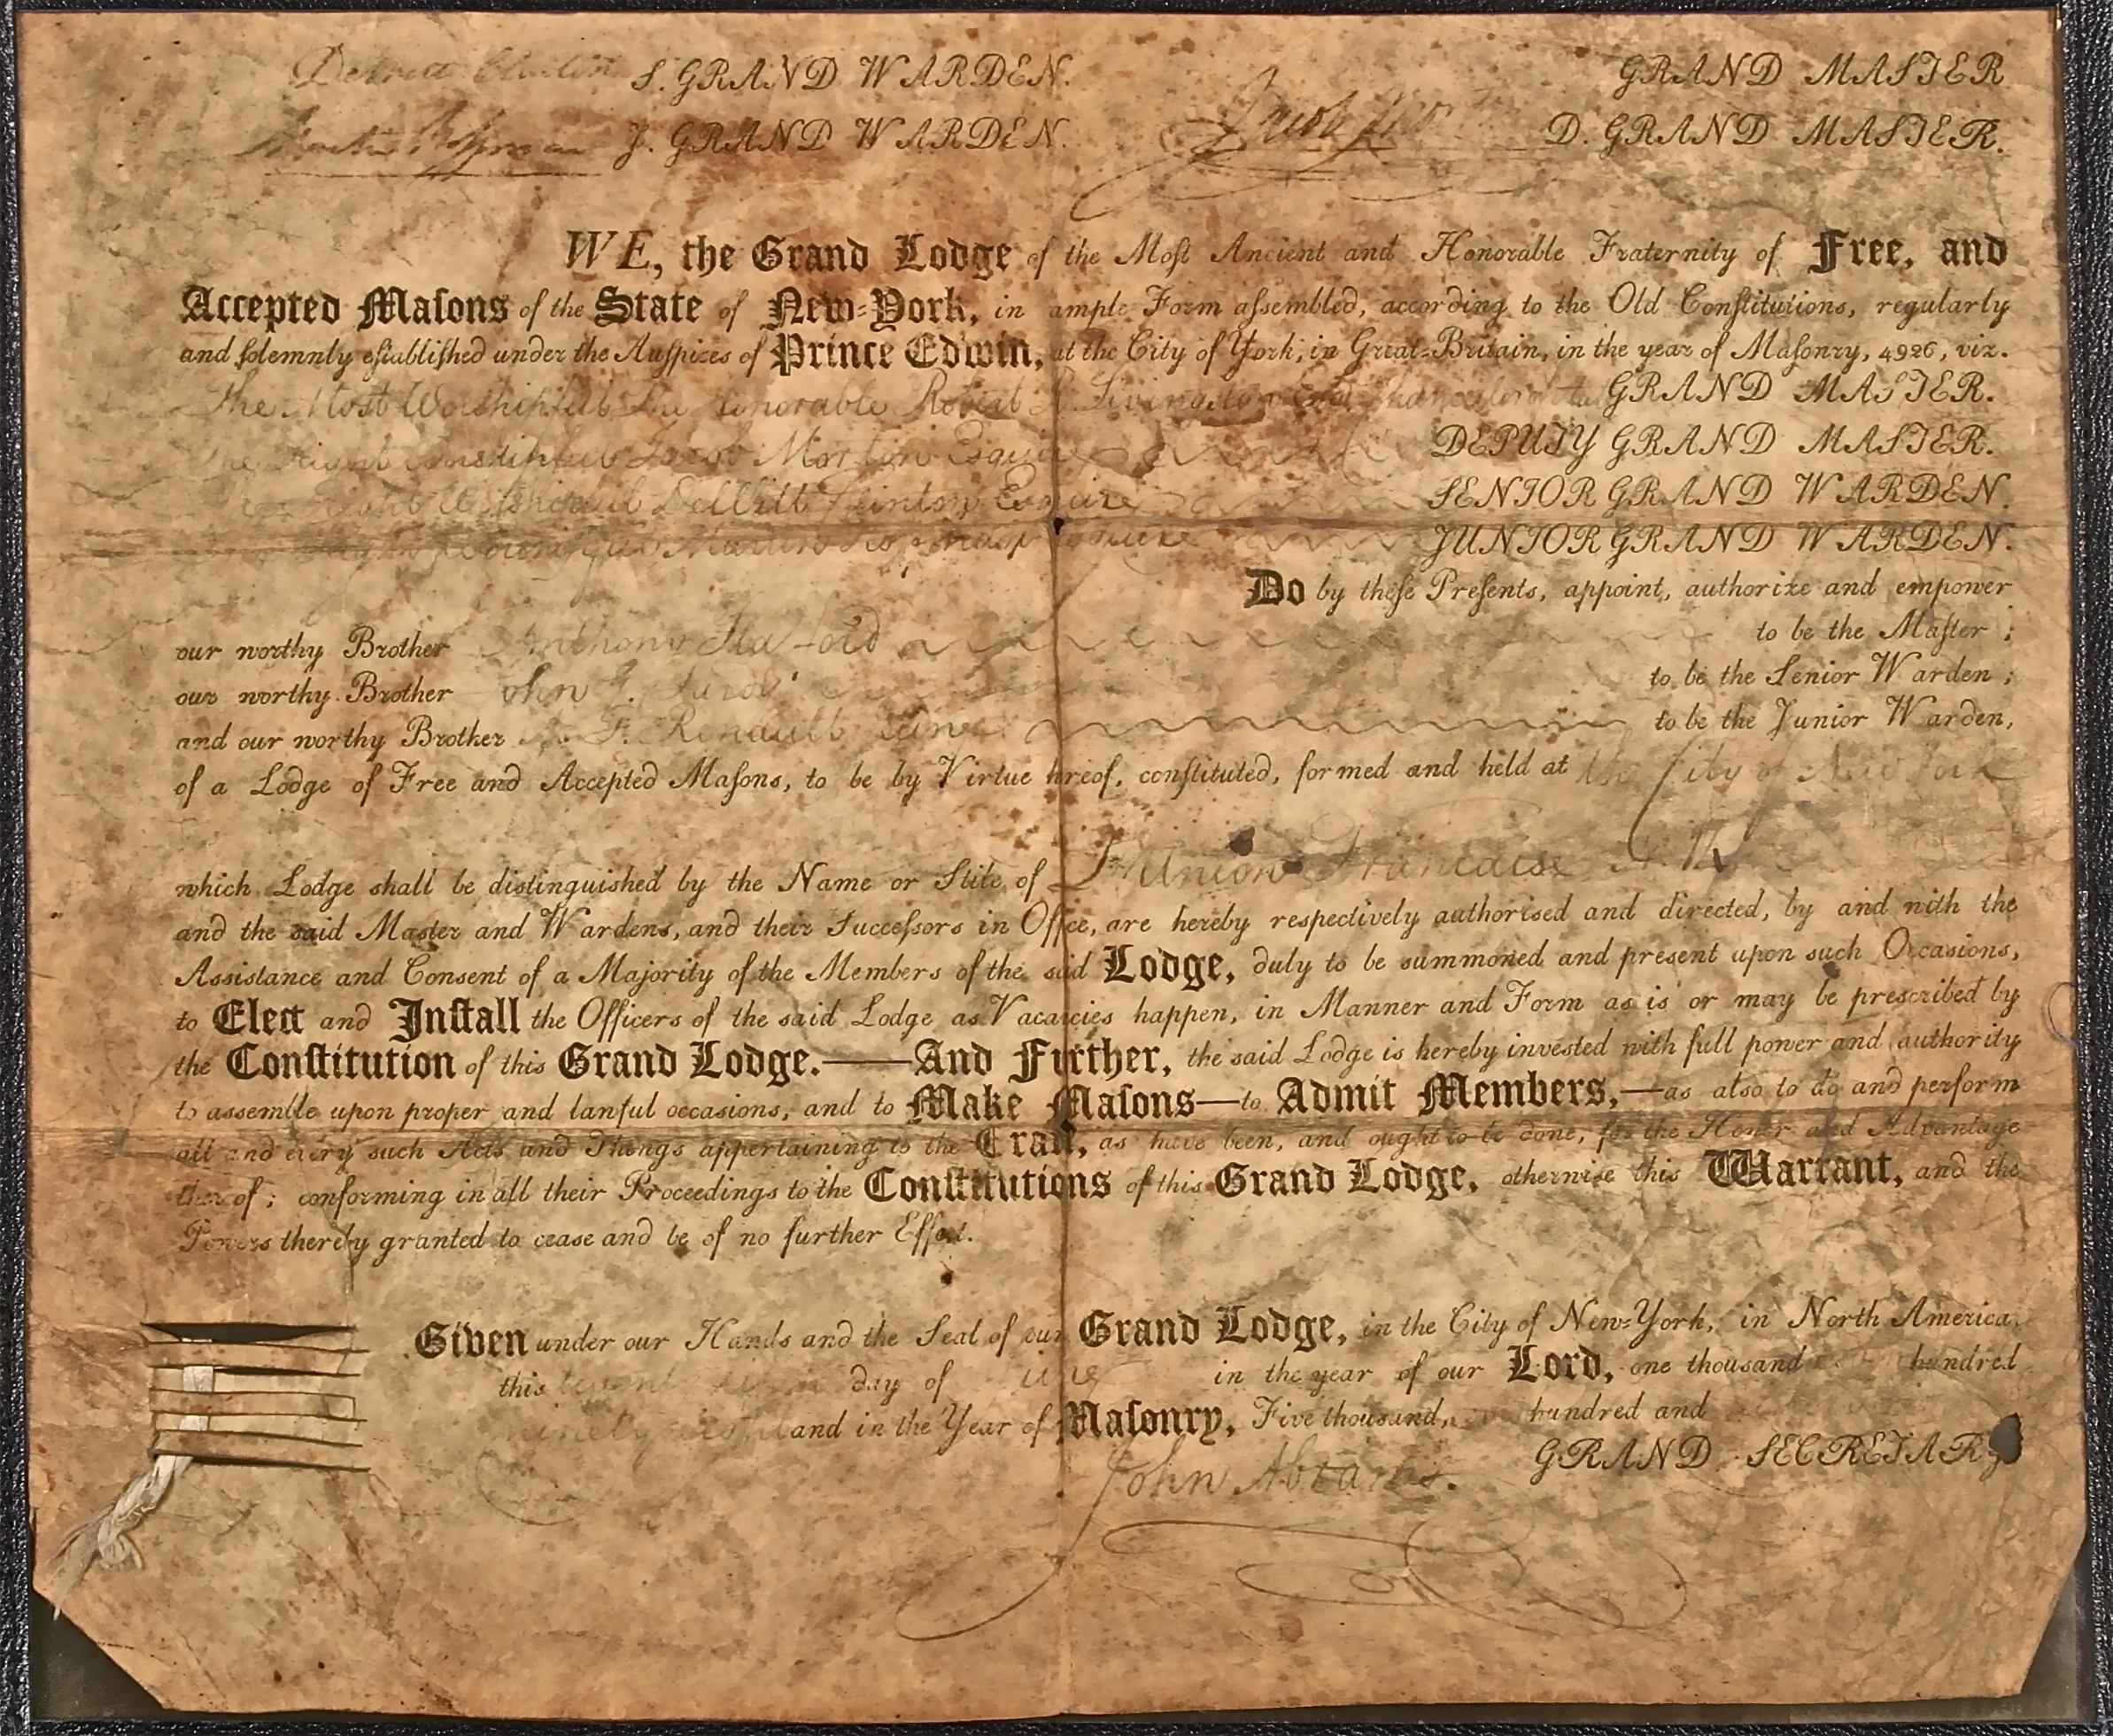 Dewitt Clinton S. GRAND WARDEN.
GRAND MASTER
Martin Hoffman J. GRAND WARDEN.
Jacob Morton D. GRAND MASTER.
WE, the Grand Lodge of the Moſt Ancient and Honorable Fraternity of Free, and
Accepted Maſons of the State of New=York, in ample Form aſsembled, according to the Old Conſtitutions, regularly
and ſolemnly eſtabliſhed under the Auſpizes of Prince Edwin, at the City of York, in Great=Britain, in the year of Maſonry, 4926, viz.
The Most Worshipful The Honorable Robert R. Livingston GRAND MASTER.
The Right Worshipful Jacob Morton Esquire DEPUTY GRAND MASTER.
The Right Worshipful DeWitt Clinton Esquire SENIOR GRAND WARDEN.
Right Worshipful Martin Hoffman Esquire JUNIOR GRAND WARDEN.
Do by theſe Preſents, appoint, authorize and empower
our worthy Brother Anthony to be the Maſter ;
our worthy Brother John G. to be the Senior Warden ;
and our worthy Brother F. Renault to be the Junior Warden,
of a Lodge of Free and Accepted Maſons, to be by Virtue hreof, conſtituted, formed and held at the City of New York
which Lodge shall be distinguished by the Name or Stile of L'Union Francaise
and the said Master and Wardens, and their Succeſsors in Offce, are hereby respectively authorised and directed, by and with the
Assistance and Consent of a Majority of the Members of the said Lodge, duly to be summoned and present upon such Occasions,
to Elect and Inſtall the Officers of the said Lodge as Vacancies happen, in Manner and Form as is or may be prescribed by
the Conſtitution of this Grand Lodge.——And Further, the said Lodge is hereby invested with full power and authority
to assemble upon proper and lawful occasions, and to Make Maſons—to Admit Members,—as also to do and perform
all and every such Acts and Things appertaining to the Craft, as have been, and ought to be done, for the Honor and Advantage
thereof ; conforming in all their Proceedings to the Conſtitutions of this Grand Lodge, otherwise this Warrant, and the
Powers thereby granted to cease and be of no further Effect.
Given under our Hands and the Seal of our Grand Lodge, in the City of New=York, in North America,
this day of June in the year of our Lord, one thousand hundred
ninety and in the Year of Maſonry, Five thousand, hundred and
John Abrams. GRAND SECRETARY